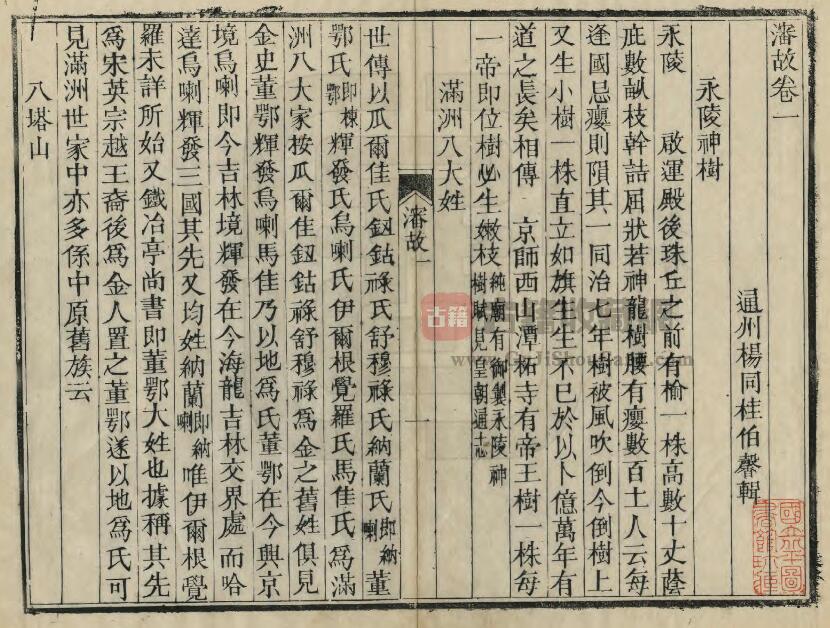 瀋故卷一
通州楊同桂伯馨輯
永陵神樹
永陵　啟運殿後珠丘之前有榆一株高數十丈蔭
庇數畝枝幹詰屈狀若神龍樹腰有癭數百土人云每
逢國忌癭則隕其一同治七年樹被風吹倒今倒樹上
又生小樹一株直立如旗生生不已於以卜億萬年有
道之長矣相傳　京師西山潭柘寺有帝王樹一株每
一帝即位樹必生嫩枝純廟有御製永陵神樹賦見皇朝通志
滿洲八大姓
瀋故一
一
世傳以瓜爾佳氏鈕鈷祿氏舒穆祿氏納蘭氏即納喇董
鄂氏即棟鄂輝發氏烏喇氏伊爾根覺羅氏馬佳氏爲滿
洲八大家按瓜爾佳鈕鈷祿舒穆祿爲金之舊姓俱見
金史董鄂輝發烏喇馬佳乃以地爲氏董鄂在今興京
境烏喇即今吉林境輝發在今海龍吉林交界處而哈
達烏喇輝發三國其先又均姓納蘭即納喇唯伊爾根覺
羅未詳所始又鐵冶亭尚書即董鄂大姓也據稱其先
爲宋英宗越王裔後爲金人置之董鄂遂以地爲氏可
見滿洲世家中亦多係中原舊族云
八塔山
古籍